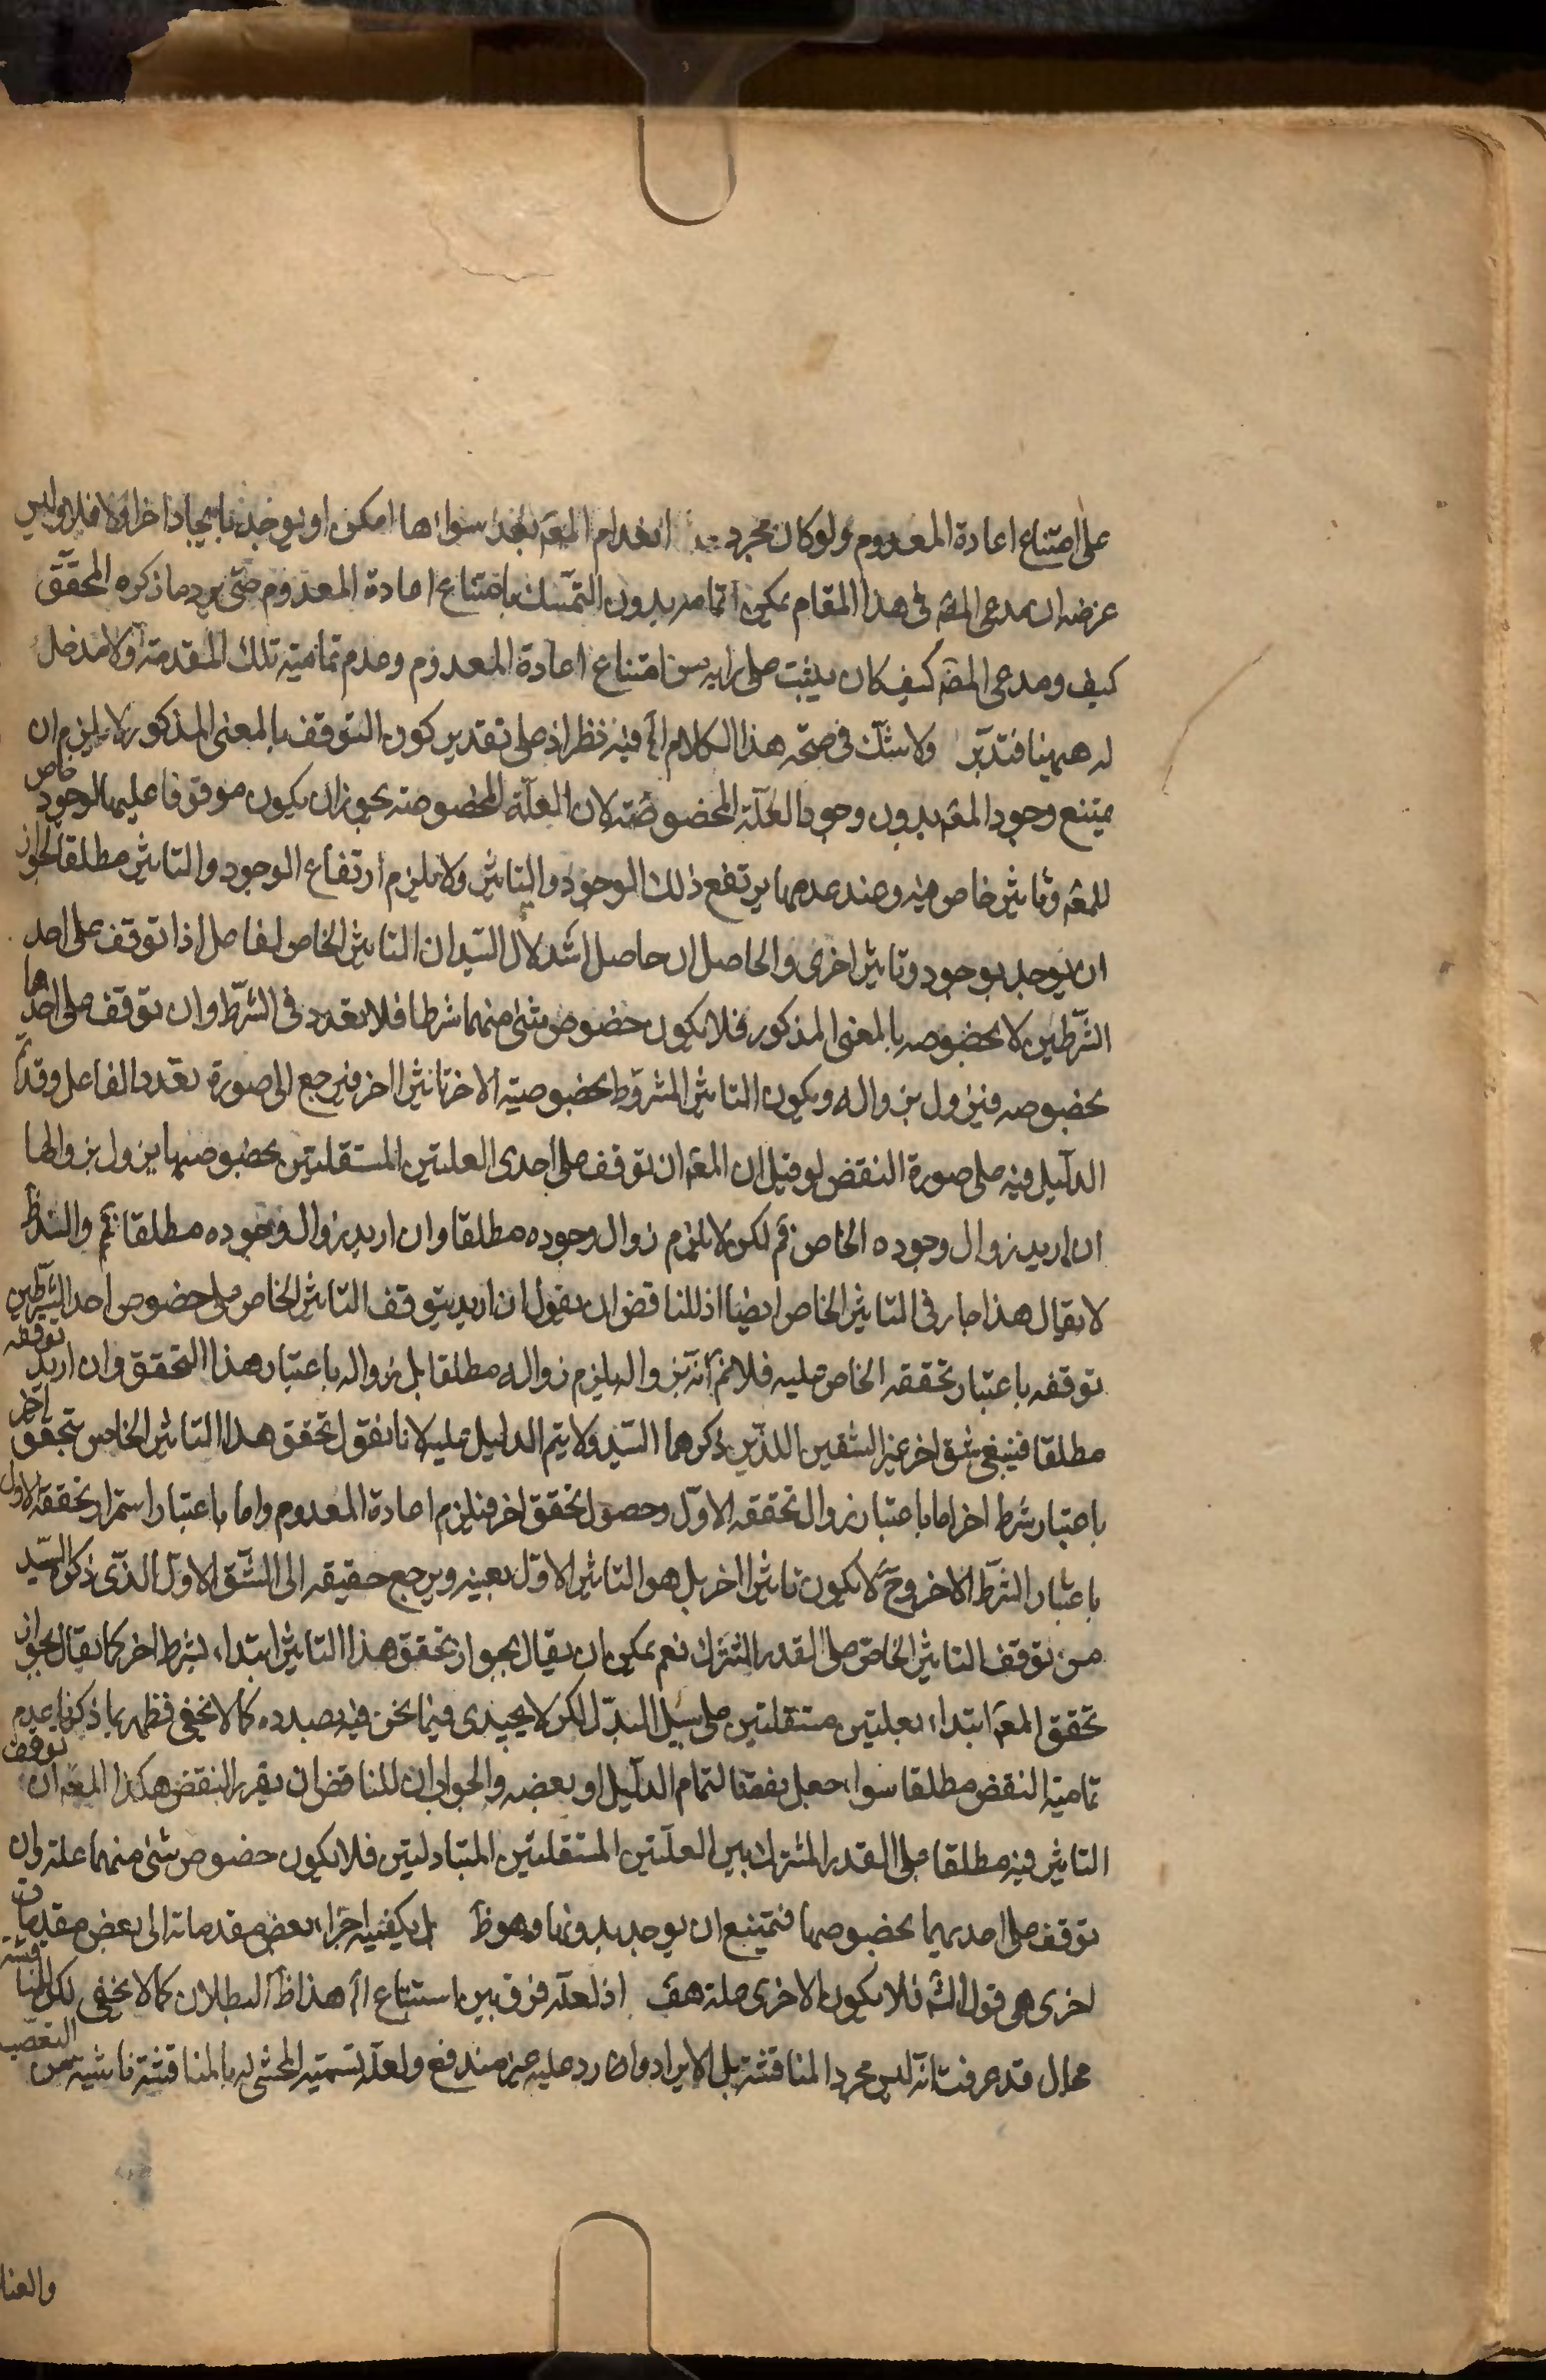 على امتناع اعادة المعدوم ولو كان مجرد انعدام المعه بعد سواء ها امكن ان يوجد بايجاد اخر اولا فلا وليس
غرضه ان مدعى المصه فى هذا المقام يمكن اتمامه بدون التمسك بامتناع اعادة المعدوم حتى يرد ما ذكره المحقق
كيف ومدعى المصه كيف كان يثبت على رايه من امتناع اعادة المعدوم وعدم تمامية تلك المقدمة اولا مدخل
له ههينا فتدبر ولا شك فى صحة هذا الكلام اه فيه نظر اذ على تقدير كون التوقف بالمعنى المذكور لا يلزم ان
يمتنع وجود المعه بدون وجود العلة المخصوصة لان العلة المخصوصة يجوز ان يكون موقوفا عليها لوجود خاص
للمعه وتاثير خاص فيه وعند عدمها يرتفع ذلك الوجود والتاثير ولا يلزم ارتفاع الوجود والتاثير مطلقا لجواز
ان يوجد بوجود وتاثير اخرى والحاصل ان حاصل استدلال السيد ان التاثير الخاص لفاعل اذا توقف على احد
الشرطين لا بخصوصه بالمعنى المذكور فلا يكون خصوص شئ منهما شرطا فلا تعدد فى الشرط وان توقف على احدها
بخصوصه فيزول بزواله ويكون التاثير المشروط بخصوصية الاخر تاثيرا اخر فيرجع الى صورة تعدد الفاعل وقد تم
الدليل فيه على صورة النقض لو قيل ان المعه ان توقف على احدى العلتين المستقلتين بخصوصها يزول بزوالها
ان اريد زوال وجوده الخاص فم لكن لا يلزم زوال وجوده مطلقا وان اريد زوال وجوده مطلقا فم والسند ظ
لا يقال هذا جار فى التاثير الخاص ايضا اذ للناقض ان يقول ان اريد بتوقف التاثير الخاص على خصوص احد الشرطين
توقفه باعتبار تحققه الخاص عليه فلانم انه بزواله يلزم زواله مطلقا بل زواله باعتبار هذا التحقق وان اريد توقفه
مطلقا فينبغى شق اخر غير الشقين اللذين ذكرهما السيد ولا يتم الدليل عليه لانا نقول تحقق هذا التاثير الخاص بتحقق اخر
باعتبار شرط اخر اما باعتبار زوال تحققه الاول وحصول تحقق اخر فيلزم اعادة المعدوم واما باعتبار استمرار تحققه الاول
باعتبار الشرط الاخر وح لا يكون تاثيرا اخر بل هو التاثير الاول بعينه ويرجع حقيقه الى الشق الاول الذى ذكره السيد
من توقف التاثير الخاص على القدر المشترك نعم يمكن ان يقال بجواز تحقق هذا التاثير ابتداء بشرط اخر كما يقال بجواز
تحقق المعه ابتداء بعلتين مستقلتين على سبيل البدل لكن لا يجدى فيما نحن فيه بصدده كما لا يخفى فظهر بما ذكرنا عدم
تمامية النقض مطلقا سواء جعل نقضا لتمام الدليل او بعضه والجواب ان للناقض ان يقرر النقض هكذا المعه ان توقف
التاثير فيه مطلقا على القدر المشترك بين العلتين المستقلتين المتبادلتين فلا يكون خصوص شئ منهما علة وان
توقف على احديهما بخصوصها فيمتنع ان يوجد بدونها وهو ظ بل يكفيه اجراء بعض مقدماته الى بعض مقدمات
اخرى هى قول الشه فلا يكون الاخرى علة هف اذ لعله فرق بين استتباع اه هذا ظ البطلان كما لا يخفى لكن المناقشة
محال قد عرفت انه ليس مجرد المناقشة بل الايراد وارد عليه غير مندفع ولعله تسمية المحشى له بالمناقشة ناشية من التعصب
والعنا